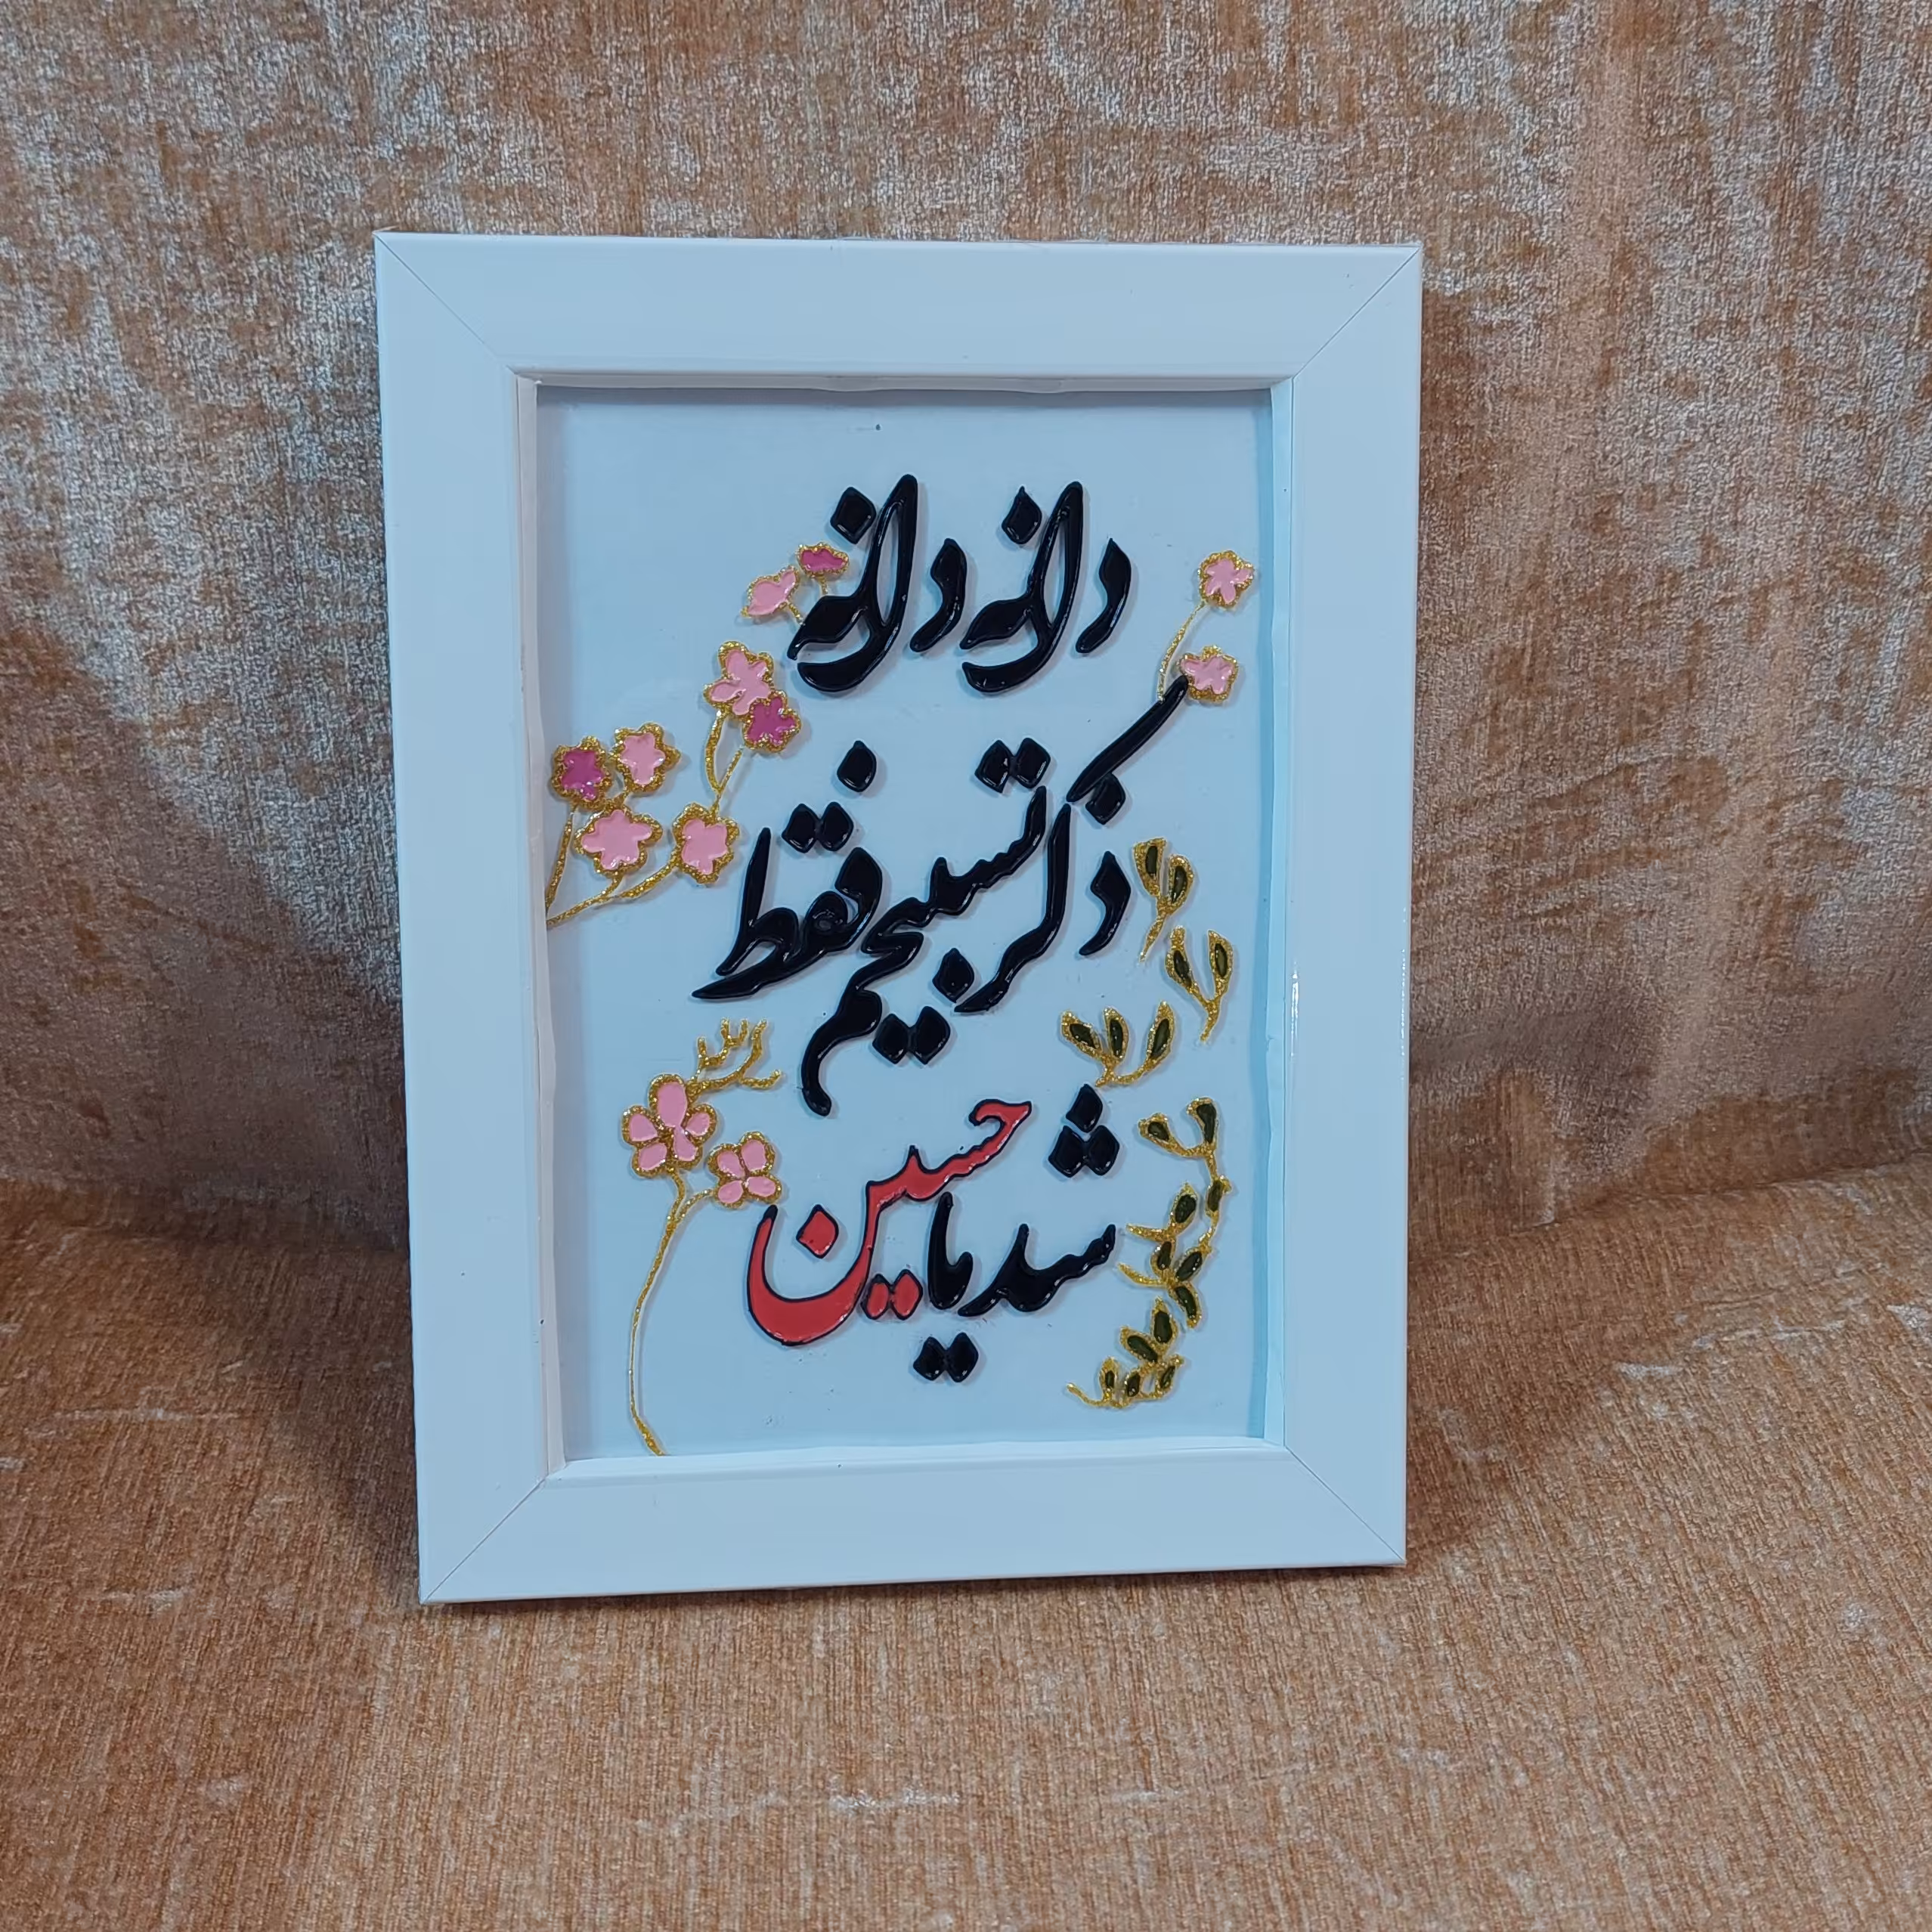 دانه دانه
ذکر تسبیحم فقط
شد یا حسین